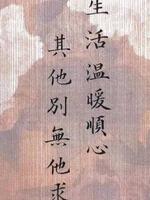 生活温暖順心
其他別無他求